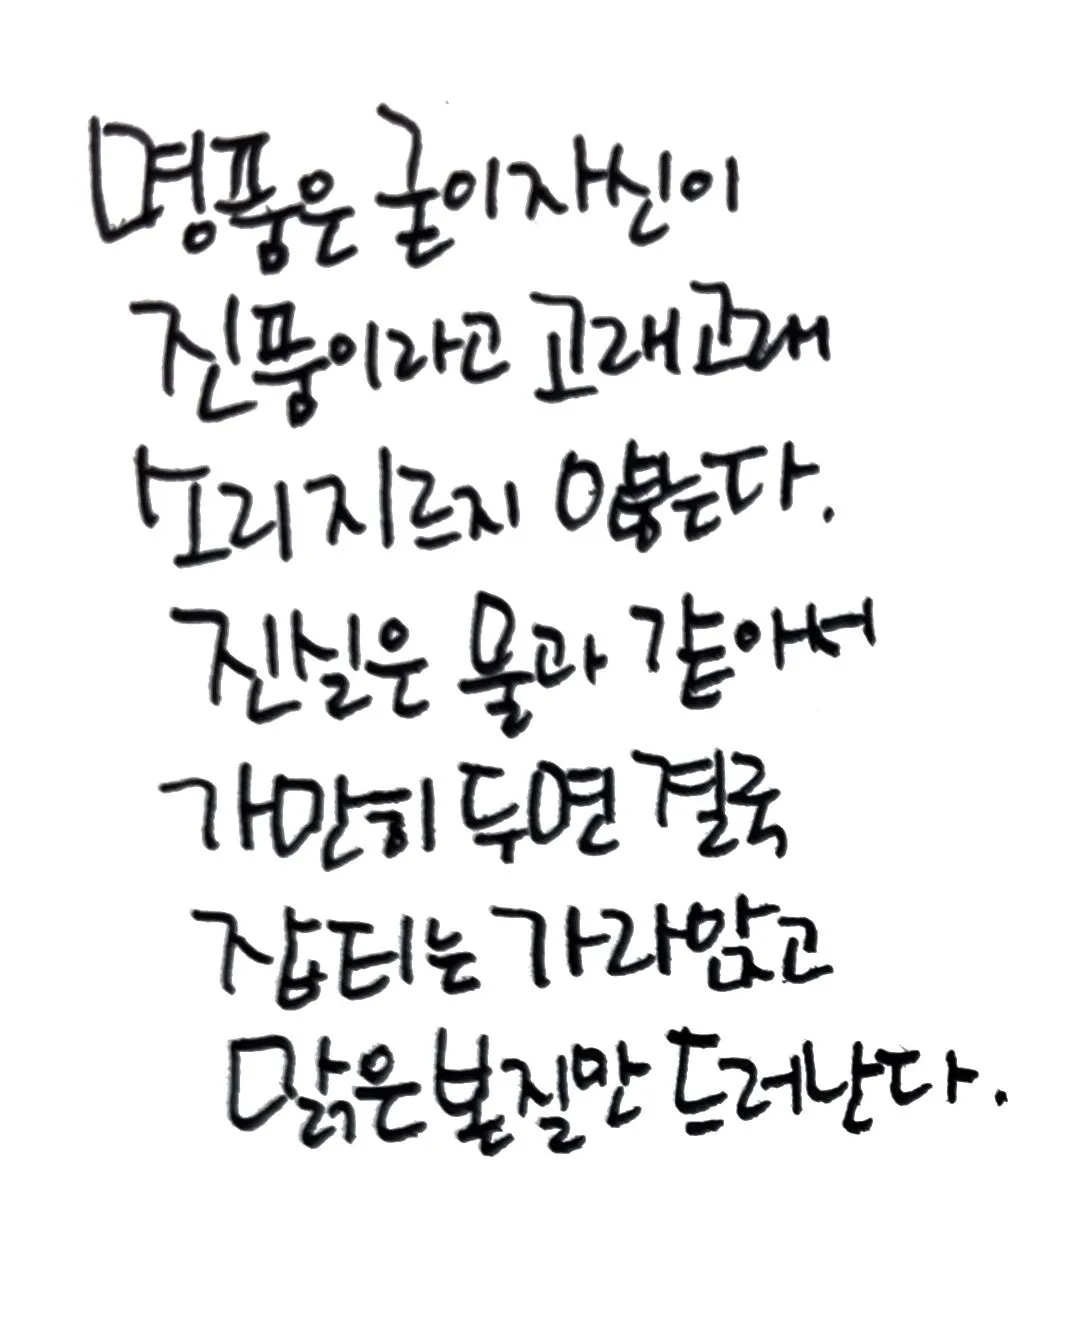 명품은 굳이 자신이
진품이라고 고래고래
소리 지르지 않는다.
진실은 물과 같아서
가만히 두면 결국
잡티는 가라앉고
맑은 본질만 드러난다.